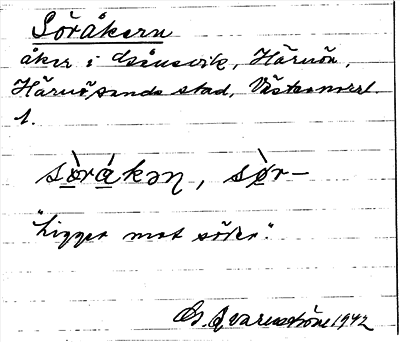 Söråkern
åker i Gånsvik, Härnön,
Härnösands stad, Västernorrl.
1.
sö̀rákən, sø̀r-
"Ligger mot söder".
G. Qvarnström 1942